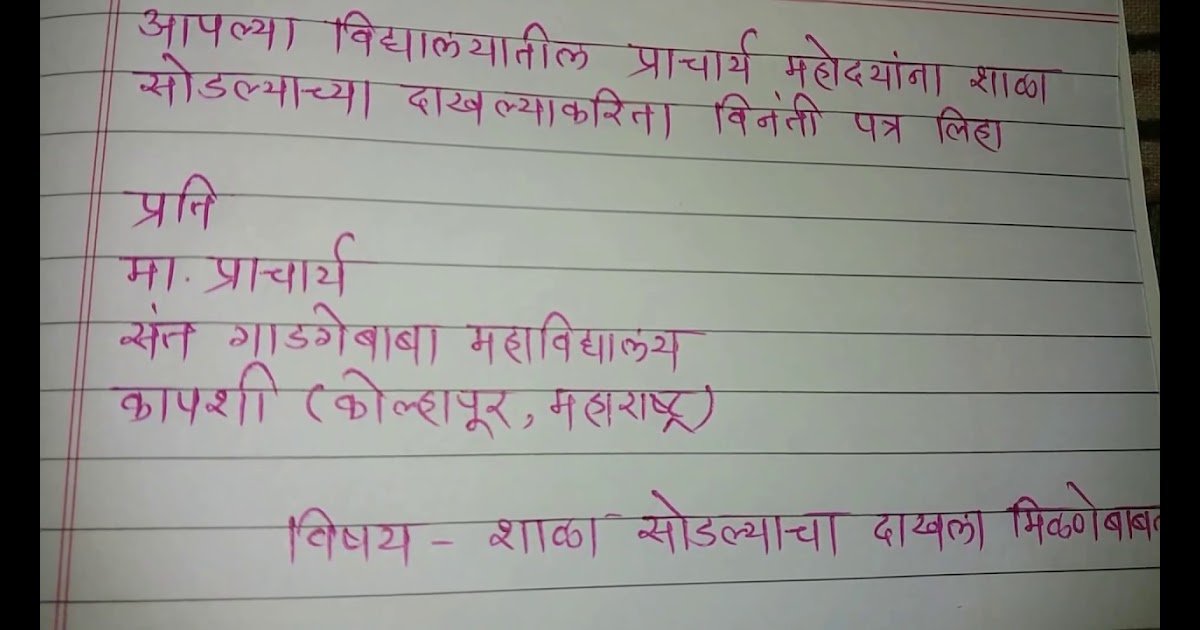 आपल्या विद्यालयातील प्राचार्य महोदयांना शाळा
सोडल्याच्या दाखल्याकरिता विनंती पत्र लिहा
प्रति
मा. प्राचार्य
संत गाडगेबाबा महाविद्यालय
कापशी (कोल्हापूर, महाराष्ट्र)
विषय - शाळा सोडल्याचा दाखला मिळणेबाबत